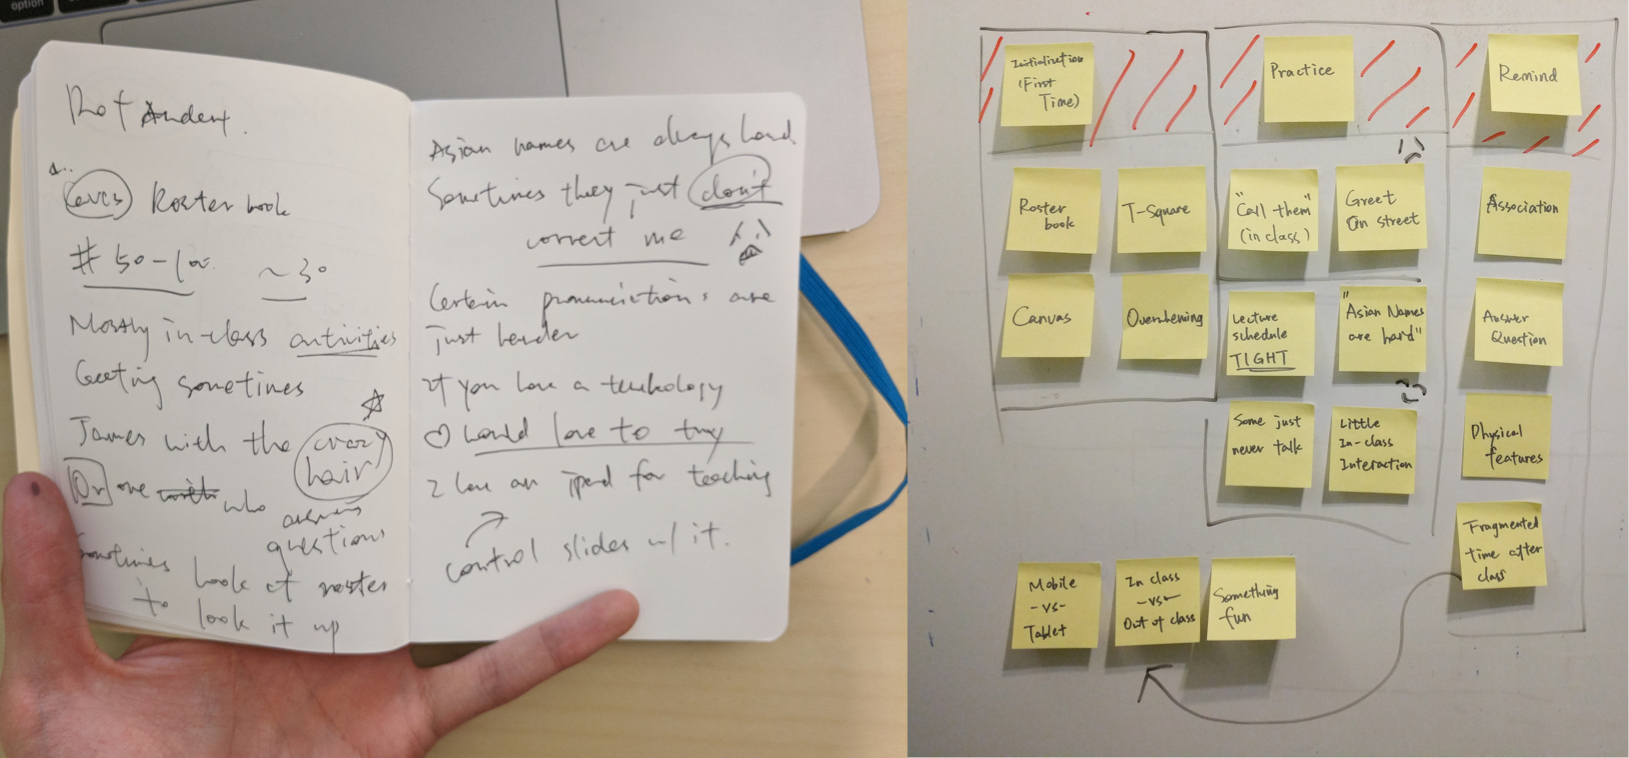 option
Prof
Roster book
# 50-100
~30
Mostly in-class activities
Greeting sometimes
James with the crazy
hair
Or one with who
answers
questions
Sometimes look at roster
to look it up
Asian names are always hard
Sometimes they just don't
correct me
Certain pronunciations are
just harder
If you have a technology
would love to try
I have an ipad for teaching
control slides w/ it.
Initialization
(First
Time)
Practice
Remind
Roster
book
T-Square
"Call them"
(in class)
Greet
On street
Association
Canvas
Overwhelming
Lecture
schedule
TIGHT
"Asian Names
are hard"
Answer
Question
Some just
never talk
Little
In-class
Interaction
Physical
features
Fragmented
time after
class
Mobile
-vs-
Tablet
In class
-vs-
Out of class
Something
fun